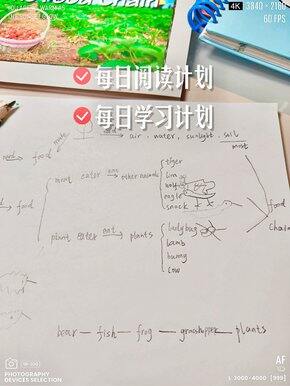 Food Chain
4K 3840 × 2160
60 FPS
每日阅读计划
每日学习计划
make
air, water, sunlight, soil
most
need food
meat eater eat other animals
tiger
lion
wolf
eagle
snack
food
food
chain
plant eater eat plants
ladybug
lamb
bunny
cow
bear — fish — frog — grasshopper — plants
PHOTOGRAPHY
DEVICES SETTINGS
AF